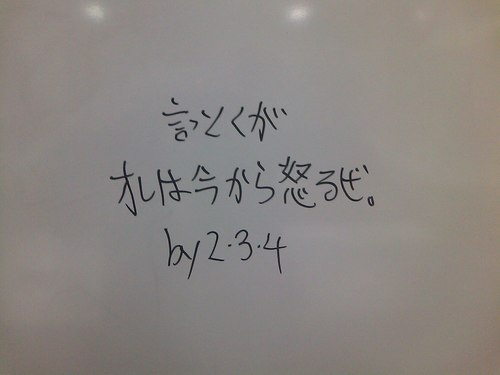 言っとくが
オレは今から怒るぜ。
by 2・3・4